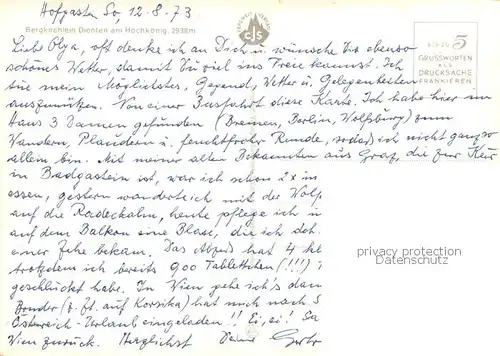 Hofgastein So, 12.8.73
Bergkirchlein Dienten am Hochkönig, 2938m
cds
BIS ZU 5
GRUSSWORTEN
ALS
DRUCKSACHE
FRANKIEREN
Liebe Olga, oft denke ich an Dich u. wünsche Dir ebenso
schönes Wetter, damit Du viel ins Freie kannst. Ich
tue mein Möglichstes, Gegend, Wetter u. Gelegenheiten
auszunützen. Von einer Busfahrt diese Karte. Ich habe hier im
Haus 3 Damen gefunden (Bremen, Berlin, Wolfsburg) zum
Wandern, Plaudern u. feuchtfroher Runde, sodaß ich nicht ganz so
allein bin. Mit meiner alten Bekannten aus Graz, die zur Kur
in Badgastein ist, war ich schon 2x in
essen, gestern wanderte ich mit der Wolf
auf die, heute pflege ich
auf dem Balkon eine Blase, die ich
einer Zehe bekam. Das hat 4
trotzdem ich bereits 900 Tablettchen (!!!)
geschluckt habe. In Wien geht's dann
Bruder (z. Zt. auf Korsika) hat mich nach
Österreich-Urlaub eingeladen!! Ei, ei!
Wien zurück. Herzlichst Deine
privacy protection
Datenschutz